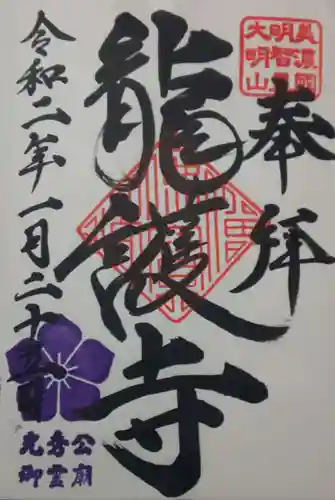 美濃國
明智
大明山
奉拝
龍護寺
令和二年一月二十日
光秀公
御霊廟